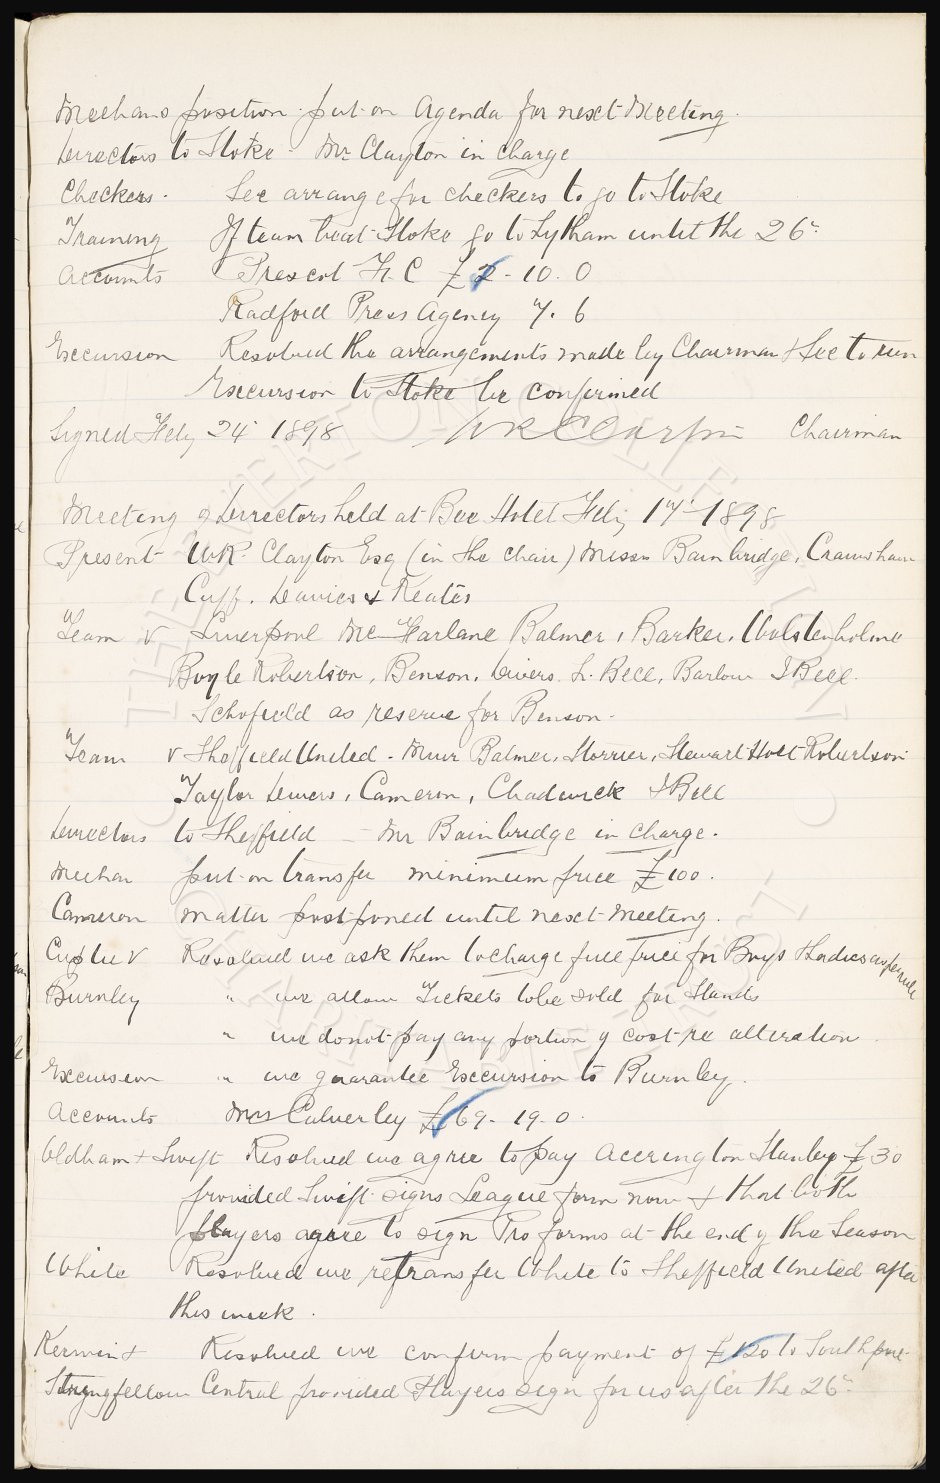 Meehans position put on Agenda for next Meeting.
Directors to Stoke - Mr Clayton in charge
Checkers. Sec arrange for checkers to go to Stoke
Training If team beat Stoke go to Lytham until the 26th
Accounts Prescot F. C £2 - 10. 0
Radford Press Agency 7. 6
Excursion Resolved the arrangements made by Chairman & Sec to run
Excursion to Stoke be confirmed
Signed Feby 24th 1898 W R Clayton Chairman
Meeting of Directors held at Bee Hotel Feby 17th 1898
Present W R. Clayton Esq (in the chair) Messrs Bainbridge, Crawshaw
Cuff. Davies & Keates
Team v Liverpool McFarlane Balmer, Barker, Wolstenholme
Boyle Robertson, Benson, Divers. L. Bell, Barlow J Bell.
Schofield as reserve for Benson.
Team v Sheffield United - Muir Balmer, Storrier, Stewart Holt Robertson
Taylor Divers, Cameron, Chadwick & Bell
Directors to Sheffield - Mr Bainbridge in charge.
Meehan put on transfer minimum price £100.
Cameron matter postponed until next Meeting.
Cup tie v Resolved we ask them to charge full price for Boys & Ladies as per rule
Burnley " we allow Tickets to be sold for Stands
" we do not pay any portion of cost re alteration
Excursion " we guarantee Excursion to Burnley.
Accounts Mrs Culverley £69. 19. 0.
Oldham & Swift Resolved we agree to pay Accrington Stanley £30
provided Swift signs League form now & that both
players agree to sign Pro forms at the end of the Season
White Resolved we retransfer White to Sheffield United after
this week.
Kerwin & Resolved we confirm payment of £120 to Southport
Stringfellow Central provided Players sign for us after the 26th
THE EVERTON COLLECTION
CHARITABLE TRUST